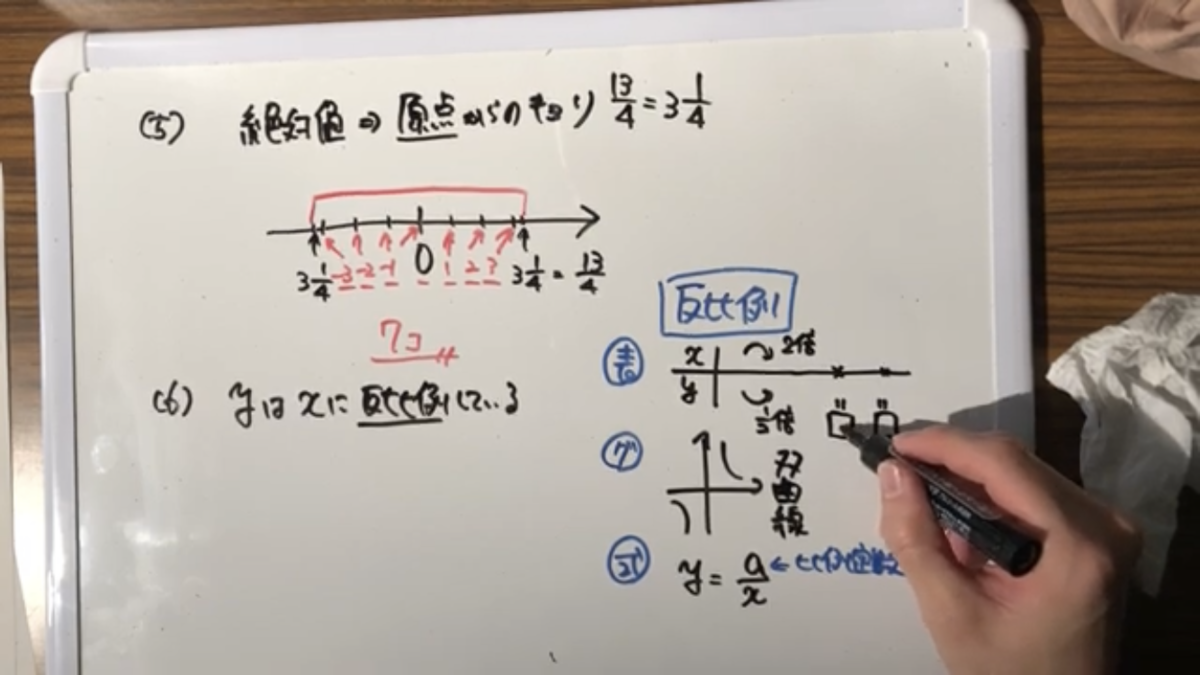 (5) 絶対値⇒原点からのキョリ 13/4 = 3 1/4
-3 -2 -1 0 1 2 3
3 1/4
3 1/4 = 13/4
7コ
(6) yはxに反比例している
反比例
表 x y 2倍 1/2倍
グ 双曲線
式 y = a/x ← 比例定数